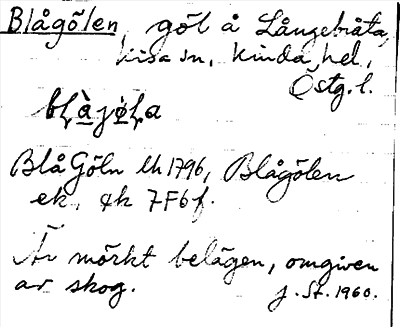 Blågölen, göl å Långebråta,
Kisa sn, Kinda hd,
Östg. l.
blàjøla
Blå Göln lh 1796, Blågölen
ek, gk 7F6f.
Är mörkt belägen, omgiven
av skog. J. St. 1960.